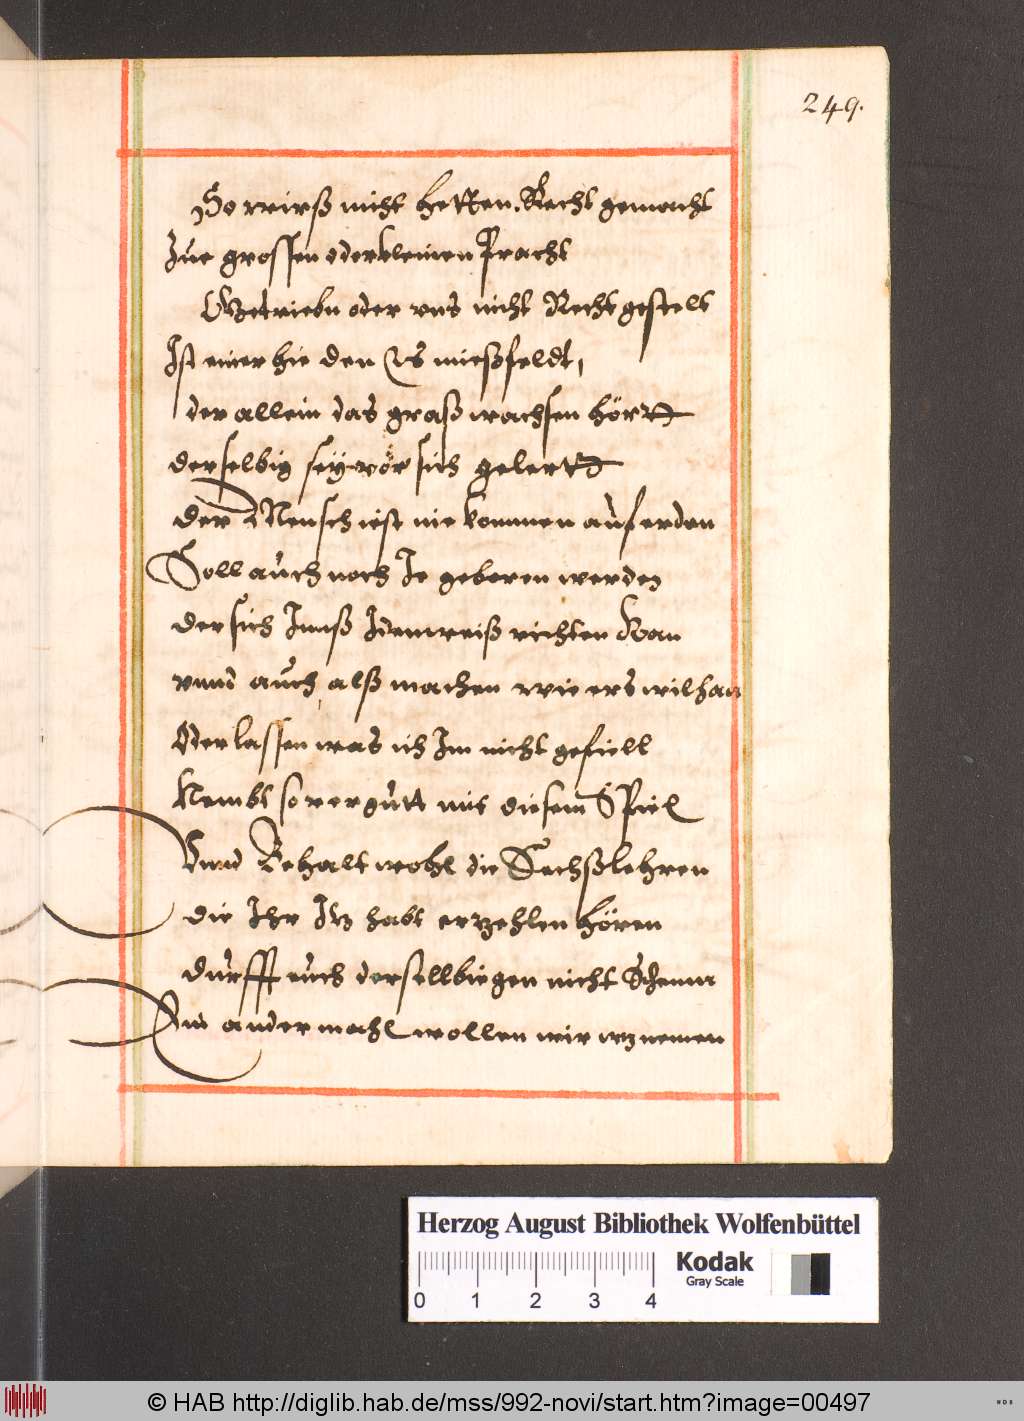 249.
So wirß nicht hetten Recht gemacht
Zue grossen oder kleinen Pracht
Getriebn oder vns nicht Recht gestelt
Ist einer hie den es mießfeldt,
der allein das graß wachsen hörtt
derselbig sey vor sich gelertt
der Mensch iest nie kommen auf erden
Soll auch noch Je geboren werden
der sich Inns Idenweiß richten kan
vnnd auch alß machen wie ers wil han
Oder lassen was ich Im nicht gefiell
Nembt so vergutt mit diesem Spiel
Vnnd Behalt wohl die Sechßlehren
die Ihr Itz habt erzehlen hören
durfft euch dersellbiegen nicht Schemn
Ein ander mahl wollen wir nemen
Herzog August Bibliothek Wolfenbüttel
Kodak
Gray Scale
0 1 2 3 4
© HAB http://diglib.hab.de/mss/992-novi/start.htm?image=00497